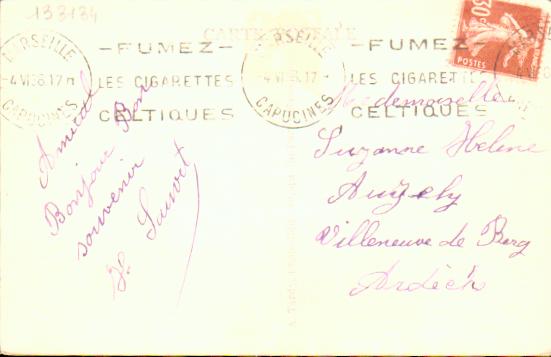 133134
CARTE POSTALE
MARSEILLE
-4 VI 36.17
CAPUCINES
-FUMEZ-
LES CIGARETTES
CELTIQUES
MARSEILLE
-4 VI 36.17
CAPUCINES
-FUMEZ-
LES CIGARETTES
CELTIQUES
30
POSTES
Amical
Bonjour Bon
souvenir
Mademoiselle
Suzanne Helene
Auzely
Villeneuve de Berg
Ardèch